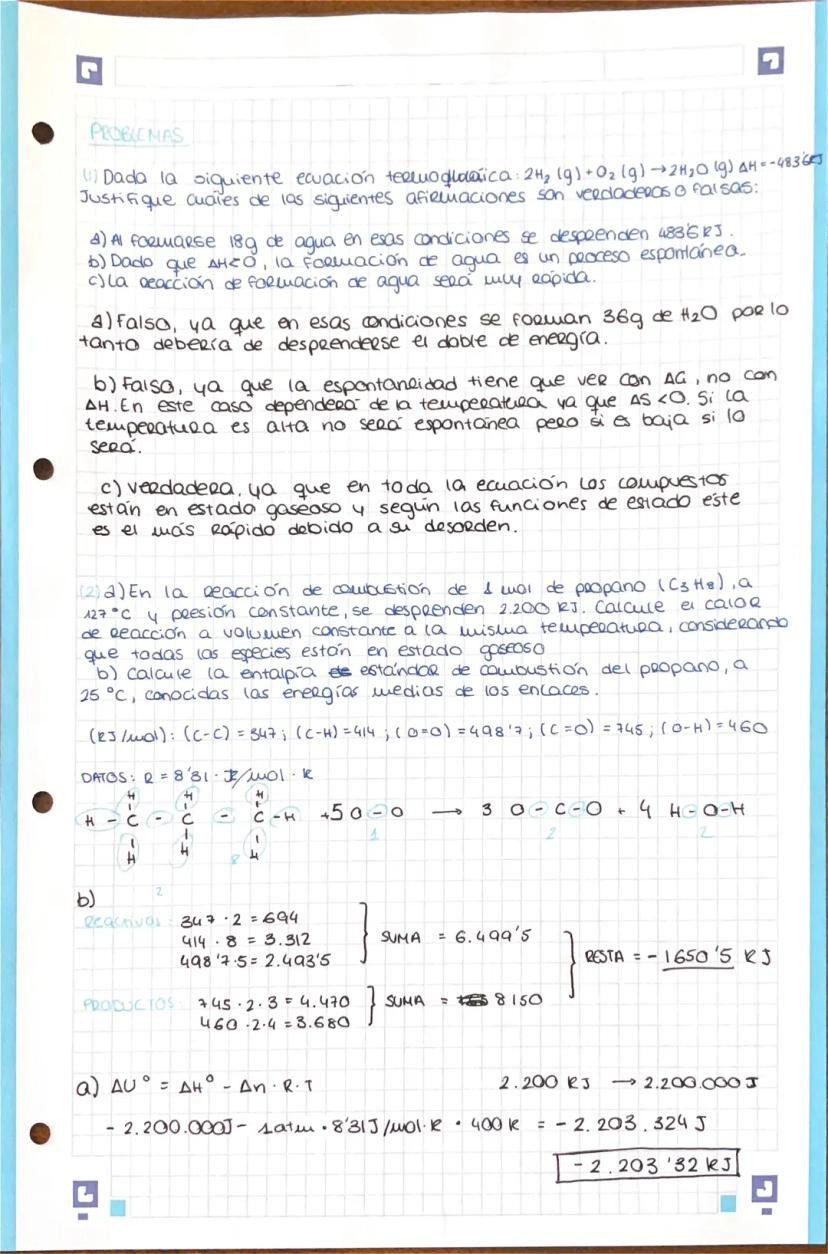 PROBLEMAS
(1) Dada la siguiente ecuación termoquímica: 2H₂ (g) + O₂ (g) → 2H₂O (g) ΔH = -483'6KJ
Justifique cuáles de las siguientes afirmaciones son verdaderas o falsas:
a) Al formarse 18g de agua en esas condiciones se desprenden 483'6 KJ.
b) Dado que ΔH<0, la formación de agua es un proceso espontánea.
c) La reacción de formación de agua será muy rápida.
a) Falso, ya que en esas condiciones se forman 36g de H₂O por lo
tanto debería de desprenderse el doble de energía.
b) Falso, ya que la espontaneidad tiene que ver con ΔG, no con
ΔH. En este caso dependerá de la temperatura ya que ΔS <0. Si la
temperatura es alta no será espontánea pero si es baja si lo
será.
c) verdadera, ya que en toda la ecuación los compuestos
están en estado gaseoso y según las funciones de estado este
es el más rápido debido a su desorden.
(2) a) En la reacción de combustión de 1 mol de propano (C₃H₈), a
127 °C y presión constante, se desprenden 2.200 KJ. Calcule el calor
de reacción a volumen constante a la misma temperatura, considerando
que todas las especies están en estado gaseoso
b) Calcule la entalpía estándar de combustión del propano, a
25 °C, conocidas las energías medias de los enlaces.
(KJ/mol): (C-C) = 347; (C-H) = 414; (O=O) = 498'7; (C=O) = 745; (O-H) = 460
DATOS: R = 8'31 J/mol · K
H H H
H - C - C - C - H + 5 O - O → 3 O - C - O + 4 H - O - H
H H H
8 1 2 2
2
b)
Reactivos: 347 · 2 = 694
414 · 8 = 3.312
498'7 · 5 = 2.493'5
SUMA = 6.499'5
RESTA = - 1650'5 KJ
PRODUCTOS: 745 · 2 · 3 = 4.470
460 · 2 · 4 = 3.680
SUMA = 8150
a) ΔU° = ΔH° - Δn · R · T 2.200 KJ → 2.200.000 J
- 2.200.000J - 1atm · 8'31 J/mol·K · 400 K = - 2.203.324 J
- 2.203'32 KJ